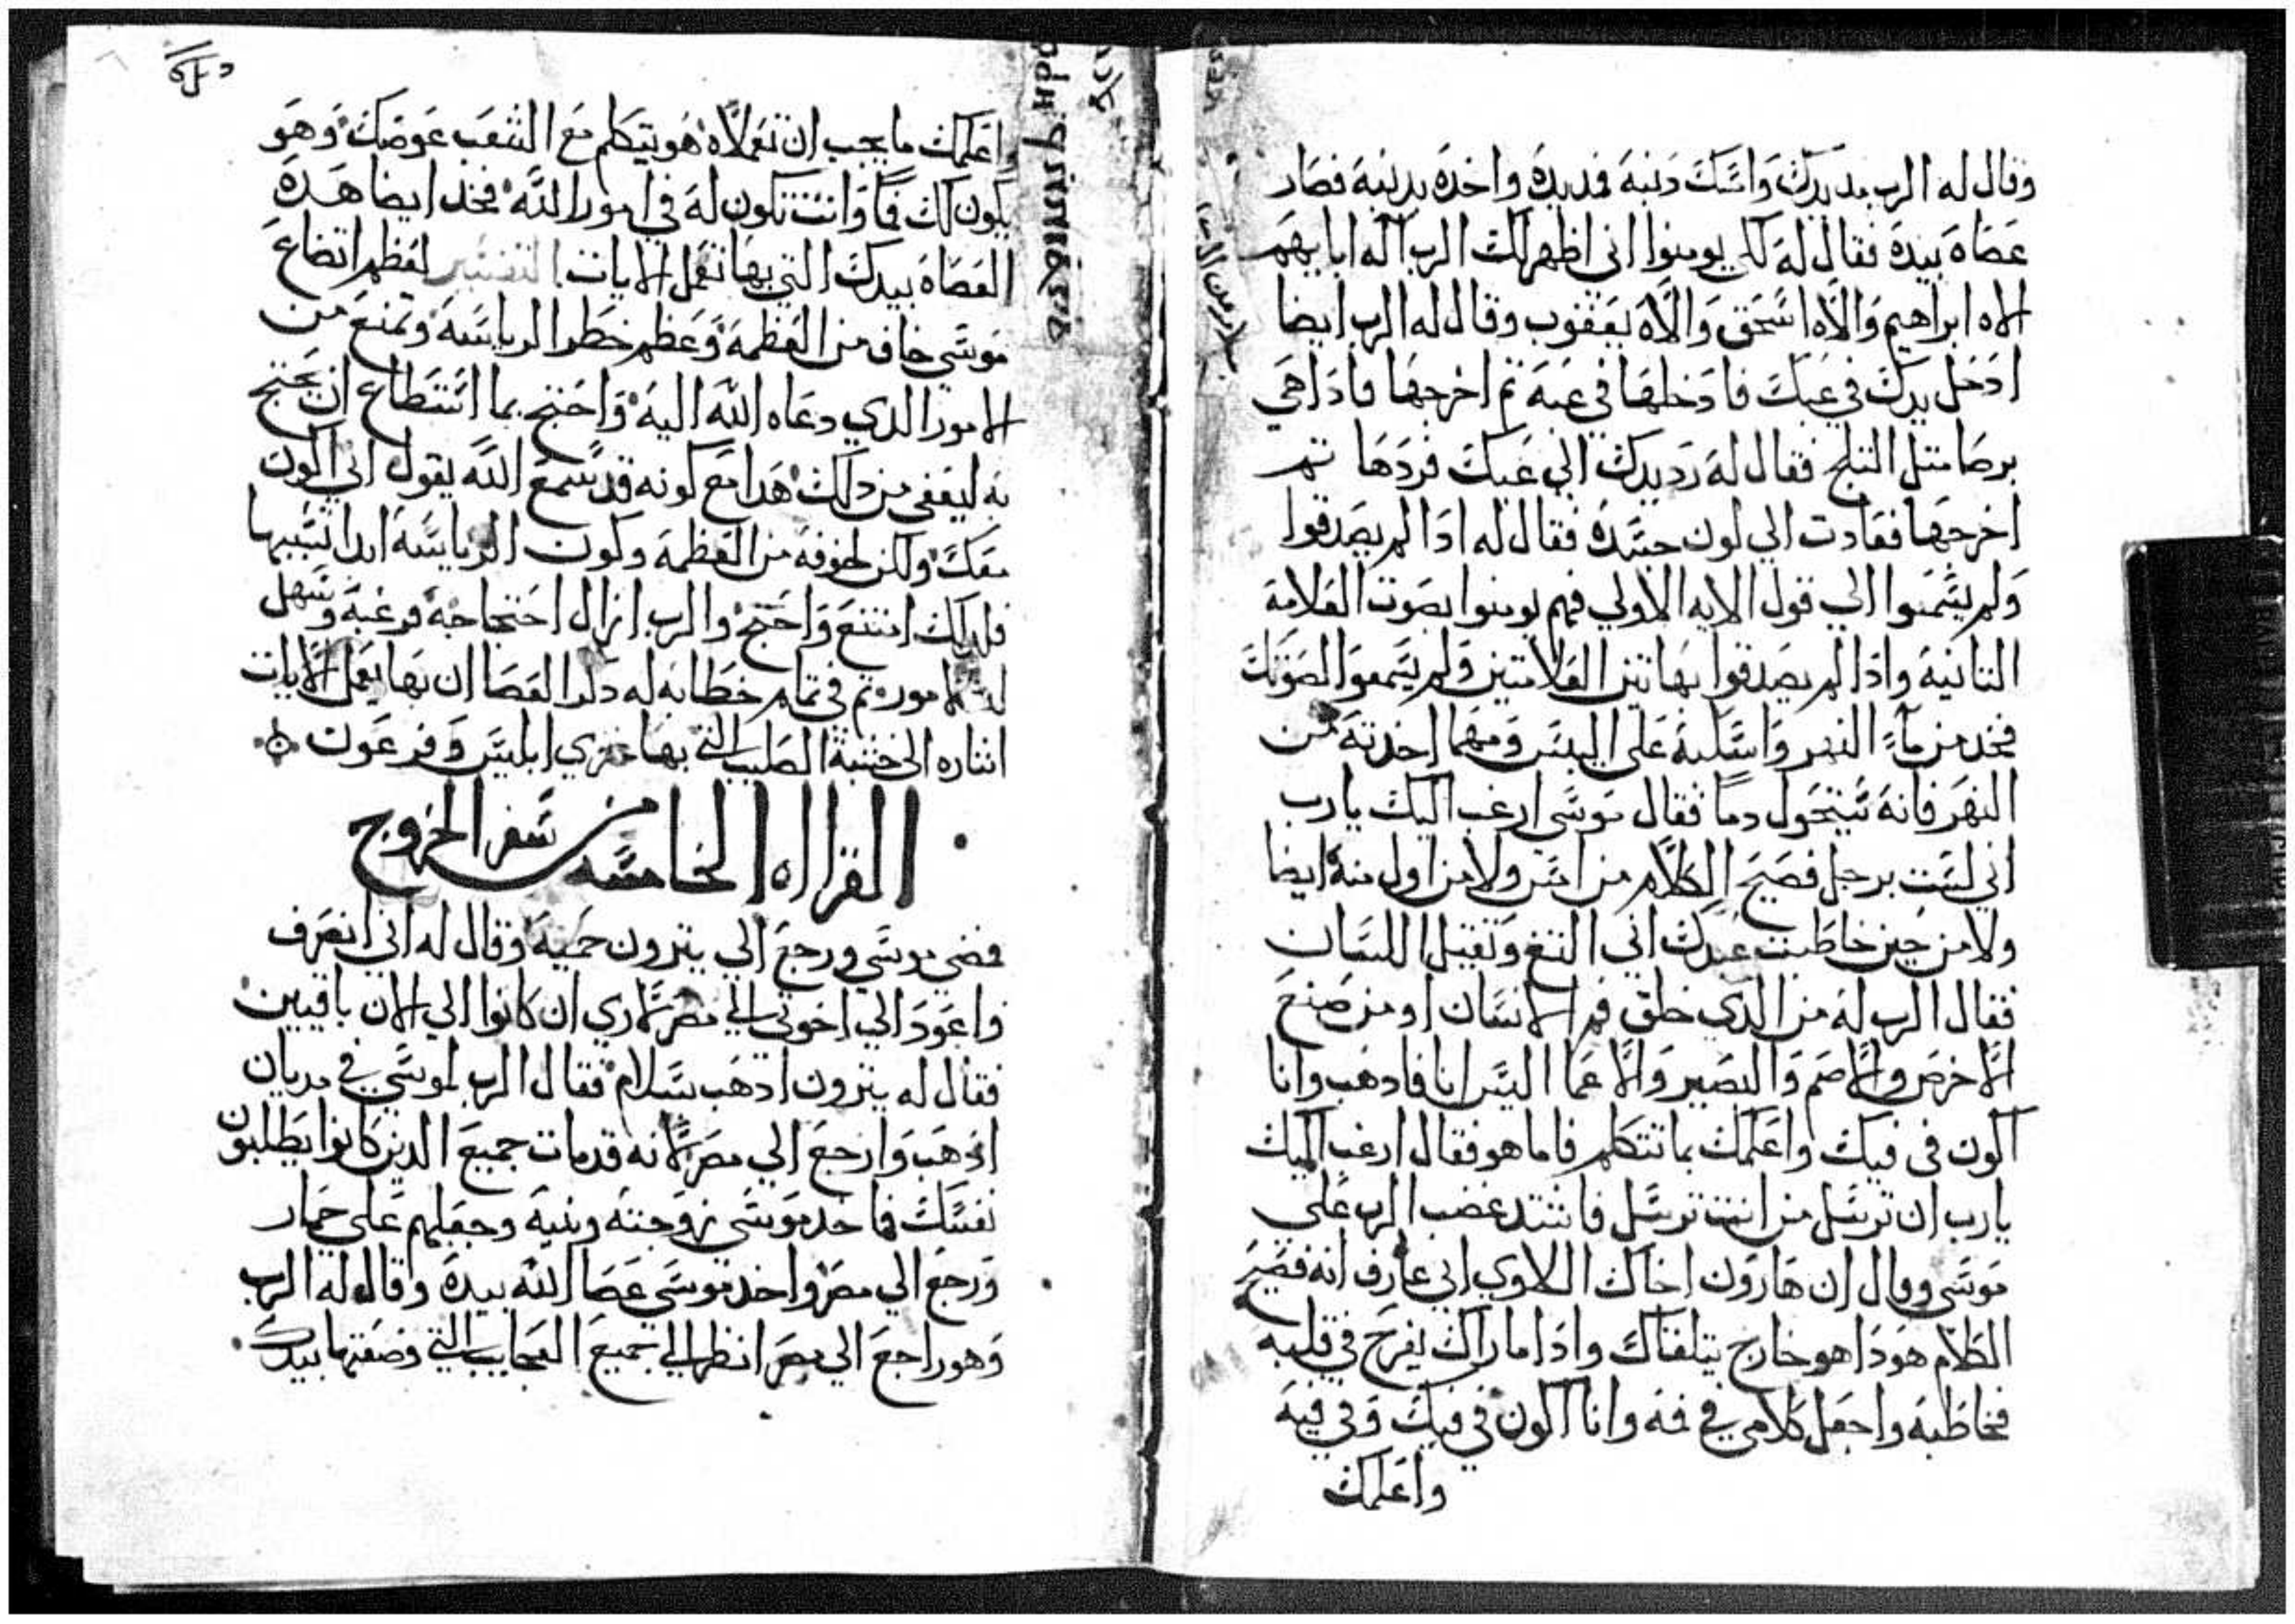 وقال له الرب مد يدك وامسك دنبه فمد يده واخده بدنبه فصار
عصاه بيده فقال له لكي يومنوا اني اظهر لك الرب اله ابايهم
الاه ابراهيم والاه اسحق والاه يعقوب وقال له الرب ايضا
ادخل يدك في عبك فادخلها في عبه تم اخرجها فادا هي
برصا متل التلج فقال له رد يدك الي عبك فردها تم
اخرجها فعادت الي لون جسده فقال له ادا لم يصدقوا
ولم يسمعوا الي قول الايه الاولي فهم يومنوا بصوت العلامه
التانيه وادا لم يصدقوا بهاتين العلامتين ولم يسمعوا لصوتك
فخد من مآء النهر واسكبه علي اليبس ومهما اخدته من
النهر فانه سيتحول دما فقال موسي ارغب اليك يا رب
اني لست برجل فصيح الكلام من امس ولا من اول منه ايضا
ولا من حين خاطبت عبدك اني التغ وتقيل اللسان
فقال الرب له من الدي خلق فم الانسان او من صنع
الاخرص والاصم والبصير والاعما اليس انا فادهب وانا
اكون في فيك واعلمك بما تتكلم فاما هو فقال ارغب اليك
يا رب ان ترسل من انت ترسل فاشتد غضب الرب علي
موسي وقال ان هارون اخاك اللاوي اني عارف انه فصيح
الكلام هودا هو خارج يتلقاك وادا ما راك يفرح في قلبه
فخاطبه واجعل كلامي في فمه وانا اكون في فيك وفي فيه
واعلمك
اعلمك ما يجب ان تعملاه هو يتكلم مع الشعب عوضك وهو
يكون لك فما وانت تكون له في امور الله فخد ايضا هده
العصاه بيدك التي بها تعمل الايات التفسير لعظم اتضاع
موسي خاف من العظمه وعظم خطر الرياسه وتمنع من
الامور الدي دعاه الله اليه واحتج بما استطاع ان يحتج
به ليعفى من دلك هدا مع كونه قد سمع الله يقول اني اكون
معك ولكن لخوفه من العظمه وكون الرياسه ابدا تسيبها
فلدلك امتنع واحتج والرب ازال احتجاجه فرغبه وسهل
له الامور تم في تمام خطابه له دكر العصا ان بها يعمل الايات
اشاره الى خشبة الصليب التي بها خزي ابليس وفرعون
القراه الخامسه من سفر الخروج
فمضي موسي ورجع الي يترون حميه وقال له اني انصرف
واعود الي اخوتي الي مصر لاري ان كانوا الي الان باقيين
فقال له يترون ادهب بسلام فقال الرب لموسي في مديان
ادهب وارجع الي مصر لانه قد مات جميع الدين كانوا يطلبون
نفسك فاخد موسي زوجته وبنيه وجعلهم علي حمار
ورجع الي مصر واخد موسي عصا الله بيده وقال له الرب
وهو راجع الي مصر انظر الي جميع العجايب التي وضعتها بيدك